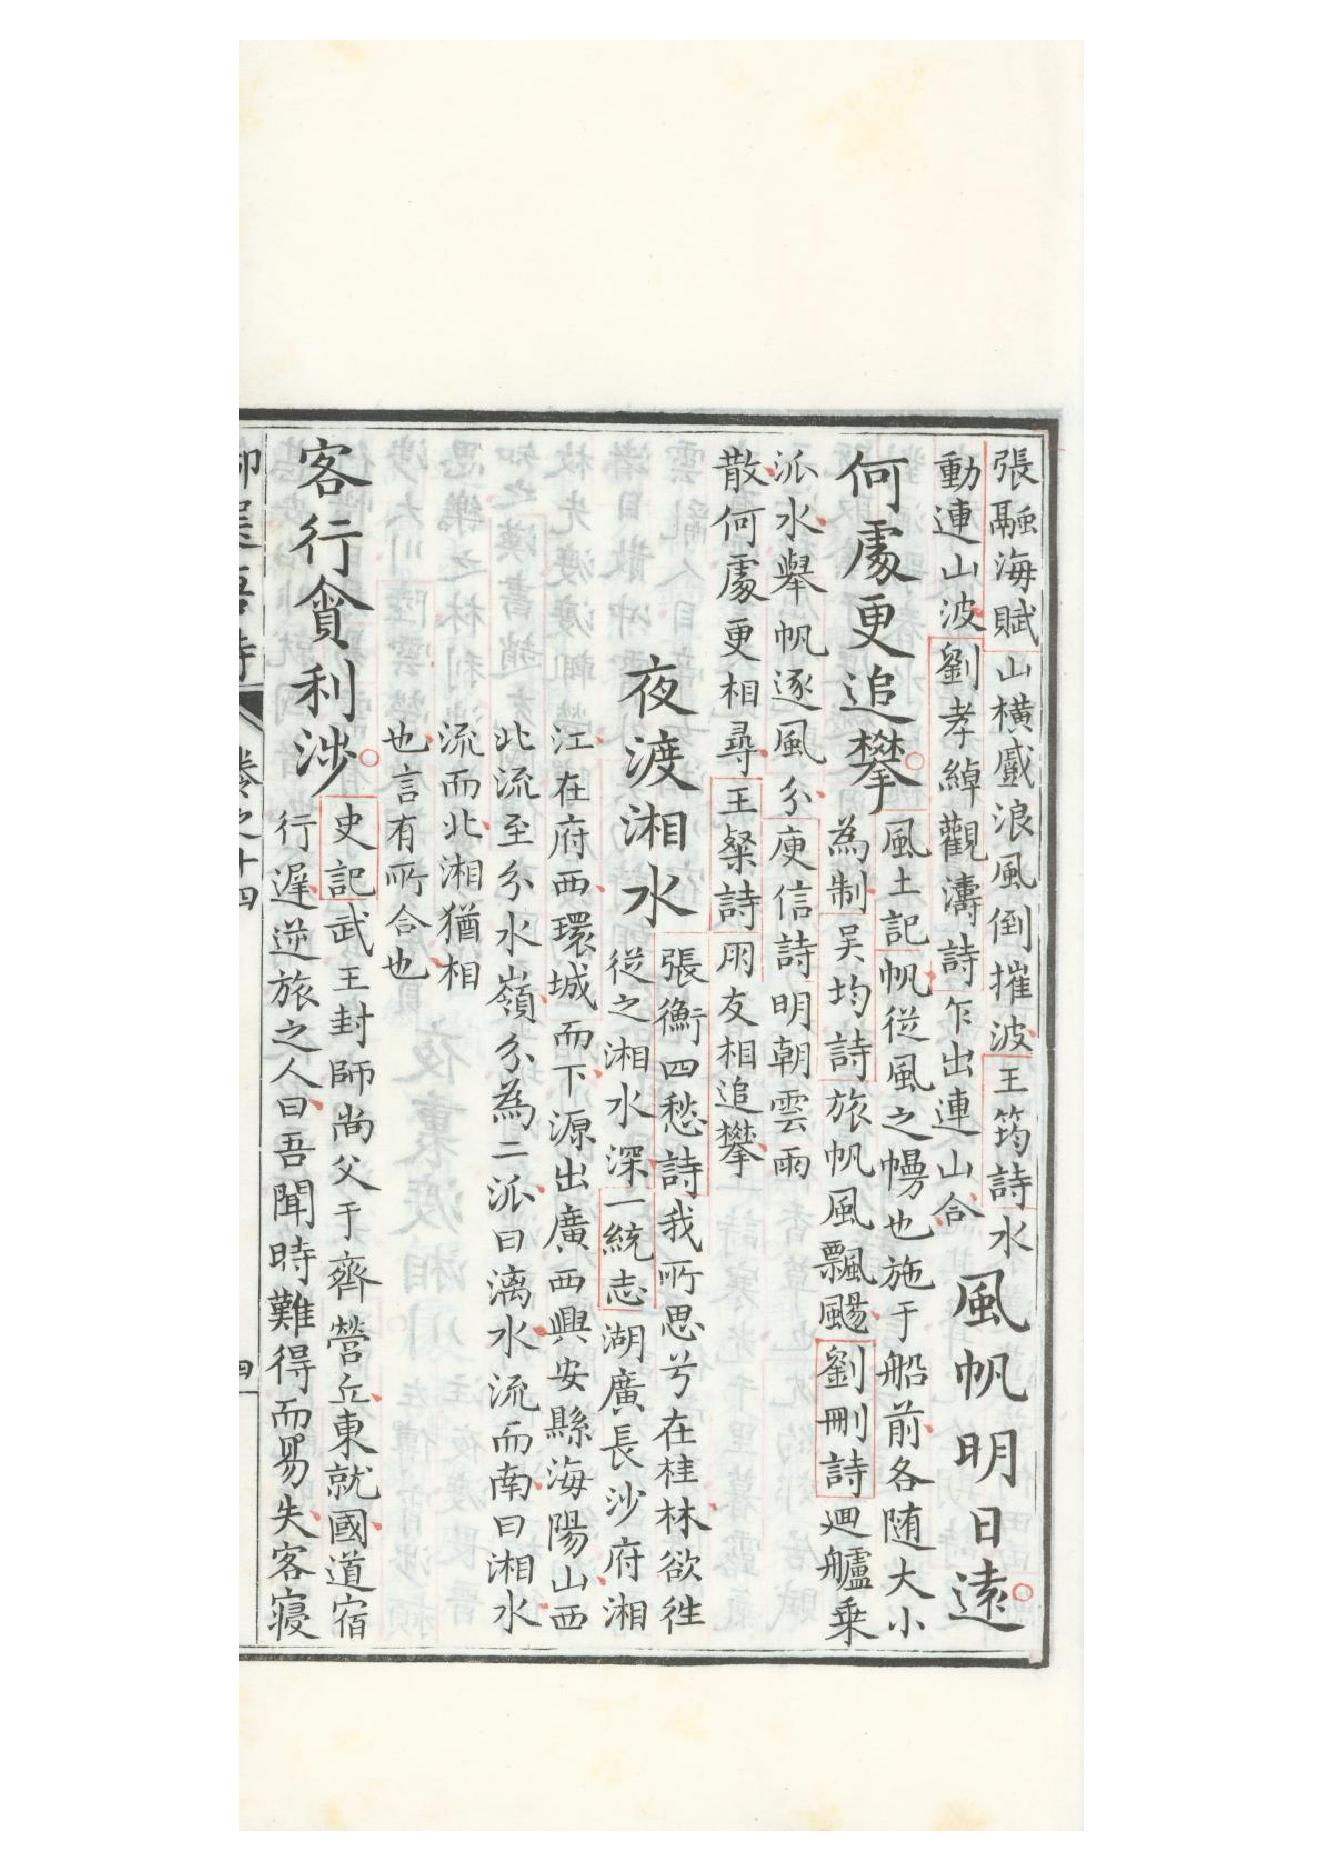 張融海賦山橫蹙浪風倒摧波王筠詩水
動連山波劉孝綽觀濤詩乍出連山合
風帆明日遠
何處更追攀
風土記帆從風之幔也施于船前各随大小
為制吴均詩旅帆風飄颺劉刪詩廻艫乗
派水舉帆逐風分庾信詩明朝雲雨
散何處更相尋王粲詩朋友相追攀
夜渡湘水
張衡四愁詩我所思兮在桂林欲徃
從之湘水深一統志湖廣長沙府湘
江在府西環城而下源出廣西興安縣海陽山西
北流至分水嶺分為二派曰漓水流而南曰湘水
流而北湘猶相
也言有所合也
客行貪利涉
史記武王封師尚父于齊營丘東就國道宿
行遲逆旅之人曰吾聞時難得而易失客寝
卷之十四
四